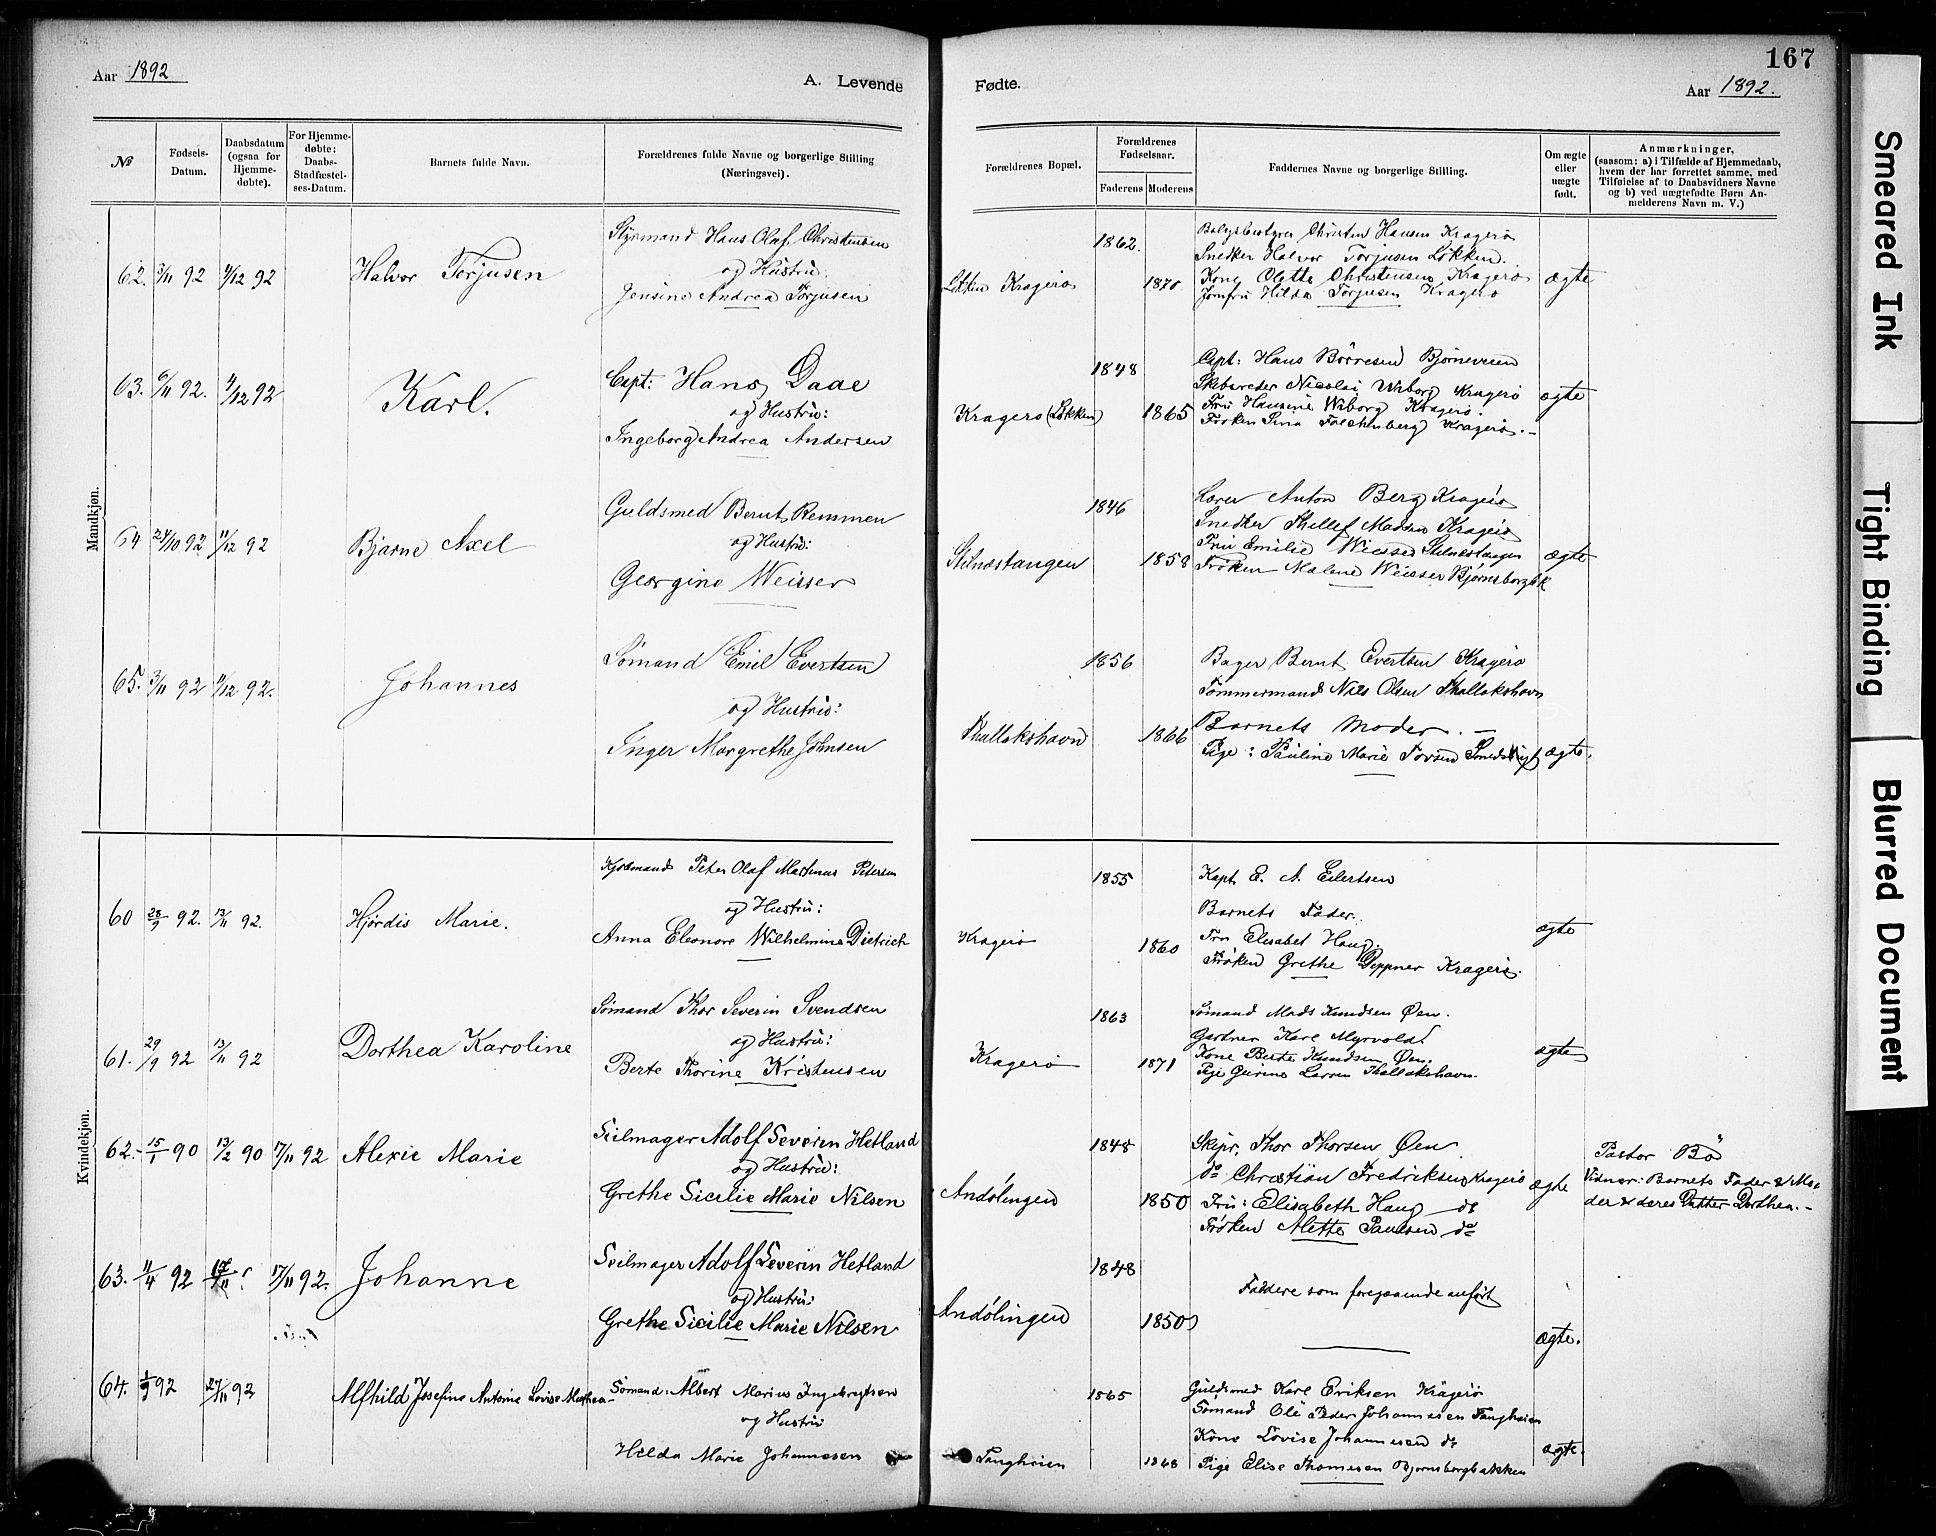 167
Aar 1892
A. Levende
Fødte.
Aar 1892.
№
Fødsels-Datum.
Daabsdatum (ogsaa for Hjemme-døbte).
For Hjemme-døbte: Daabs-Stadfæstel-ses-Datum.
Barnets fulde Navn.
Forældrenes fulde Navne og borgerlige Stilling (Næringsvei).
Forældrenes Bopæl.
Forældrenes Fødselsaar.
Faderens
Moderens
Faddernes Navne og borgerlige Stilling.
Om ægte eller uægte født.
Anmærkninger,
(saasom: a) i Tilfælde af Hjemmedaab,
hvem der har forrettet samme, med
Tilføielse af to Daabsvidners Navne
og b) ved uægtefødte Børn An-
melderens Navn m. V.)
Mandkjøn.
62. 5/11 92 4/12 92 Halvor Torjusen
Styrmand Hans Olaf Christensen
og Hustru:
Jensine Andrea Torjusen
Løkken Kragerø
1862.
1870
Christen Hansen Kragerø
Snedker Halvor Torjusen Løkken.
Kone Olette Christensen Kragerø
Jomfru Hilda Torjusen Kragerø
ægte
63. 6/11 92. 4/12 92 Karl.
Capt: Hans Daae
og Hustru:
Ingeborg Andrea Andersen
Kragerø (Løkken)
1848
1865
Capt: Hans Børresen Bjørneveien
Skibsreder Nicolai Wiborg Kragerø
Fru Hansine Wiborg Kragerø.
Frøken Sina Kragerø.-
ægte
64 24/10 92 11/12 92 Bjarne Axel
Guldsmed Bernt Remmen
og Hustru:
Georgine Weisser
Stilnæstangen
1846
1858
Lærer Anton Berg Kragerø
Snedker Thellef Madsen Kragerø
Fru Emilie Weisser Stilnæstangen
Frøken Malene Weisser Bjørnsborgbk
ægte
65. 3/11 92 11/12 92. Johannes
Sømand Emil Evertsen
og Hustru:
Inger Margrethe Johnsen
Thallakshavn
1856
1866
Bager Bernt Evertsen Kragerø
Tømmermand Nils Olsen Thallakshavn
Barnets Moder. -
Pige: Pauline Marie
ægte.
Kvindekjøn.
60 28/9 92. 13/11 92. Hjørdis Marie.
Peter Olaf Martinus Petersen
og Hustru:
Anna Eleonore Wilhelmine Dietrich
Kragerø
1855
1860
Kapt. E. A. Eilertsen
Barnets Fader.
Fru Elisabet Haug.
Frøken Grethe Deppner Kragerø.
ægte
61. 29/9 92 13/11 92 Dorthea Karoline
Sømand Thor Severin Svendsen
og Hustru:
Berte Thorine Kristensen
Kragerø
1863
1871
Sømand Mads Knudsen Øen.
Gartner Karl Myrvold
Kone Berte Knudsen Øen.
Pige Gurine Larsen Thallakshavn.
ægte
62.- 15/1 90 13/2 90 17/11 92 Alexie Marie
Seilmager Adolf Severin Hetland
og Hustru:
Grethe Sicilie Marie Nilsen
Andölingen
1848
1850
Skipr. Thor Thorsen Øen.
do Christian Fredriksen Kragerø
Fru: Elisabeth Haug do
Frøken Mette Paulsen do
ægte
Pastor Bö
Vidner: Barnets Fader & Mo-
der & deres Datter Dorthea.-
63. 11/4 92 17/11 92. Johanne
Seilmager Adolf Severin Hetland
og Hustru:
Grethe Sicilie Marie Nilsen
Andölingen
1848
1850
Faddere som foregaaende anført
ægte.
64. 1/9 92 27/11 92 Alfhild Josefine Antonie Lovise Mathea
Sømand: Albert Marius Ingebrigtsen
og Hustru
Hilda Marie Johannesen
Tangheien
1865
1868
Guldsmed Karl Eriksen Kragerø
Sømand Ole Peder Johannesen Tangheien
Kone Lovise Johannesen do
Pige Elise Thomesen Bjørnsborgbakken
ægte.
Smeared Ink
Tight Binding
Blurred Document